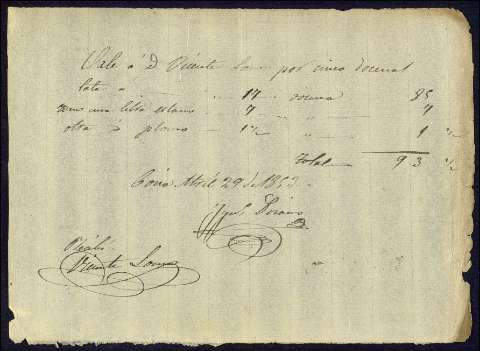 Vale á D Vicente por cinco docenas
lata a 17 docena 85
una libra estano 7 " 7
otra " plomo 1 1/2 " 1 1/2
Total 93 1/2
Abril 29 de 1853
Recibi
Vicente